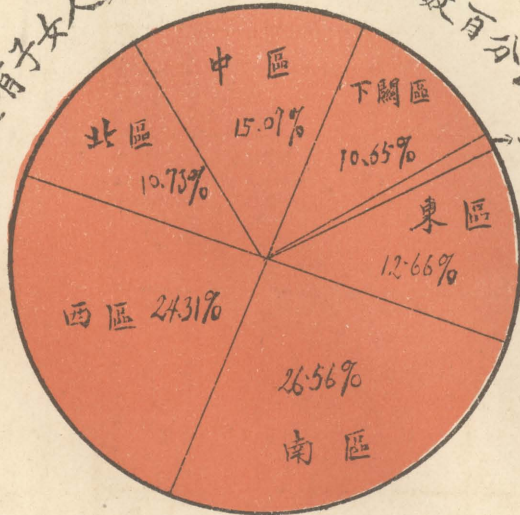 有子女人
數百分
中區
15.07%
下關區
10.65%
北區
10.73%
東區
12.66%
西區 24.31%
26.56%
南區